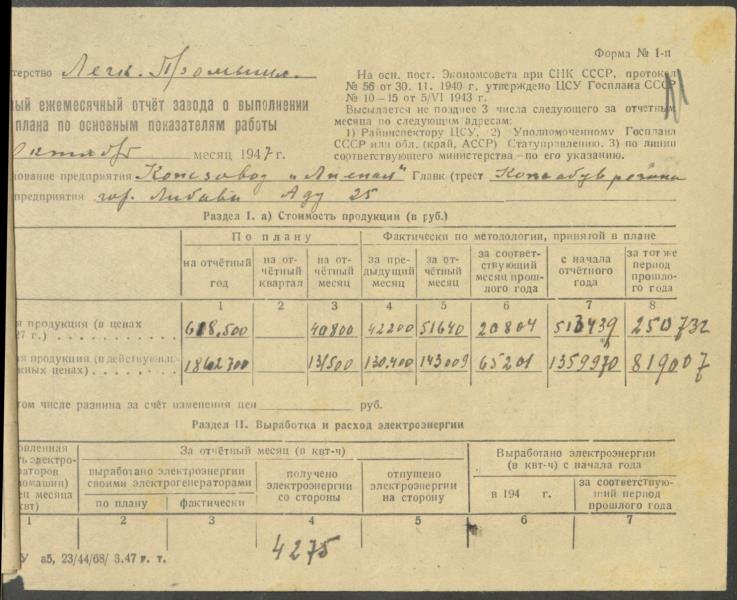 Форма № 1-п
терство Легк. Промышл.
На осн. пост. Экономсовета при СНК СССР, протокол
№ 56 от 30. 11. 1940 г., утверждено ЦСУ Госплана СССР
№ 10—15 от 5/VI 1943 г.
Высылается не позднее 3 числа следующего за отчетным
месяца по следующим адресам:
1) Райинспектору ЦСУ, 2) Уполномоченному Госплана
СССР или обл. (край, АССР) Статуправлению. 3) по линии
соответствующего министерства—по его указанию.
ный ежемесячный отчёт завода о выполнении
плана по основным показателям работы
Октябрь месяц 1947 г.
нование предприятия Кожзавод „Лиепая" Главк (трест
предприятия гор. Либава Аду 25
Раздел I. а) Стоимость продукции (в руб.)
По плану
Фактически по методологии, принятой в плане
на отчётный год
на отчётный квартал
на отчётный месяц
за предыдущий месяц
за отчётный месяц
за соответствующий месяц прошлого года
с начала отчётного года
за тот же период прошлого года
1 2 3 4 5 6 7 8
я продукция (в ценах
27 г.)
618,500 40800 42200 51640 20804 513439 250732
я продукция (в действующих
жных ценах)
1862700 131500 130,400 143009 65201 1359970 819007
том числе разница за счёт изменения цен руб.
Раздел II. Выработка и расход электроэнергии
овленная
ть электро-
раторов
омашин)
ец месяца
квт)
За отчётный месяц (в квт-ч)
Выработано электроэнергии
(в квт-ч) с начала года
выработано электроэнергии
своими электрогенераторами
получено
электроэнергии
со стороны
отпущено
электроэнергии
на сторону
по плану
фактически
в 194 г.
за соответствующий период
прошлого года
1 2 3 4 5 6 7
4275
У а5, 23/44/68/ 3.47 г. т.